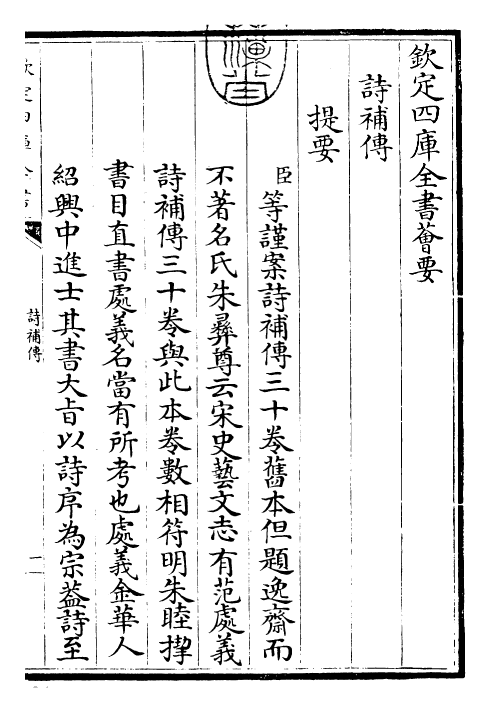 欽定四庫全書薈要
詩補傳
提要
臣等謹案詩補傳三十卷舊本但題逸齋而
不著名氏朱彛尊云宋史藝文志有范處義
詩補傳三十卷與此本卷數相符明朱睦㮮
書目直書處義名當有所考也處義金華人
紹興中進士其書大旨以詩序為宗葢詩至
詩補傳
一